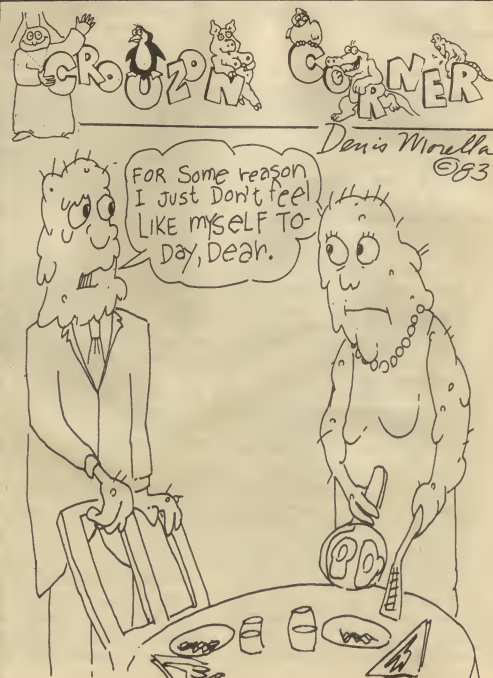 CROUZON CORNER
Denis Morella
©83
FOR Some reason
I Just Don't feel
LIKE MYSELF TO-
DAY, Dear.